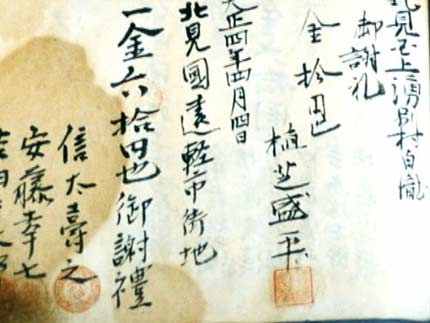 見国上湧別村白瀧
御謝礼
金拾円也
植芝盛平
大正四年四月四日
北見國遠軽市街地
一金六拾円也御謝禮
信太壽之
安藤幸七